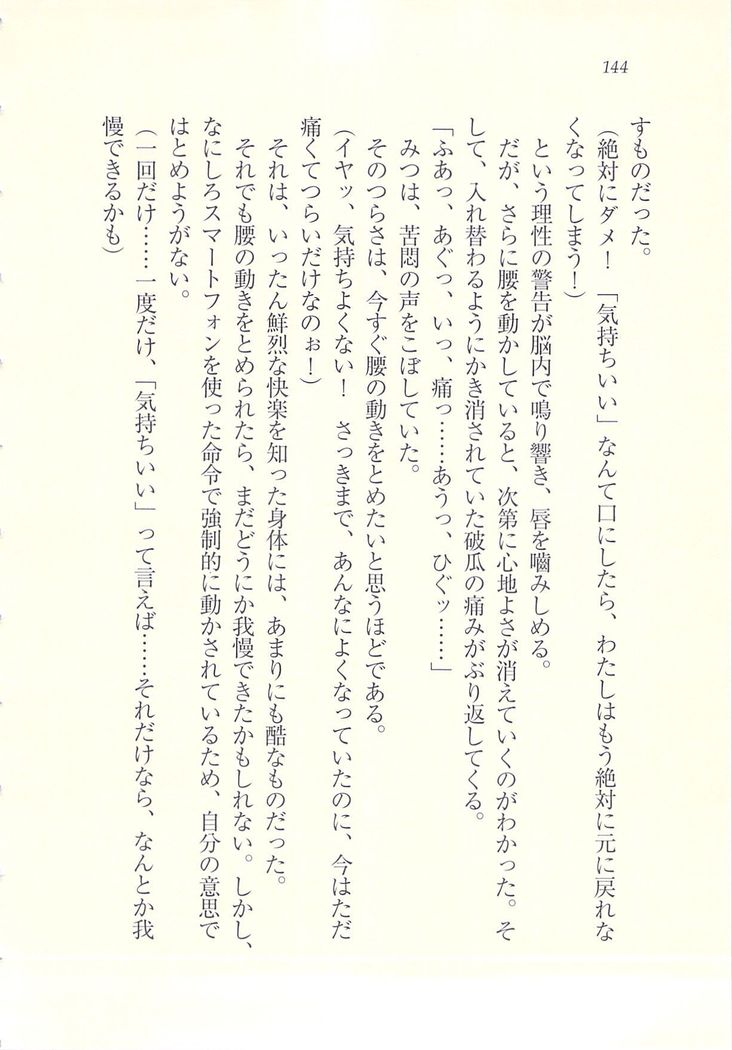 144
すものだった。
（絶対にダメ！　「気持ちいい」なんて口にしたら、わたしはもう絶対に元に戻れな
くなってしまう！）
という理性の警告が脳内で鳴り響き、唇を嚙みしめる。
だが、さらに腰を動かしていると、次第に心地よさが消えていくのがわかった。そ
して、入れ替わるようにかき消されていた破瓜の痛みがぶり返してくる。
「ふあっ、あぐっ、いっ、痛っ……あうっ、ひぐッ……」
みつは、苦悶の声をこぼしていた。
そのつらさは、今すぐ腰の動きをとめたいと思うほどである。
（イヤッ、気持ちよくない！　さっきまで、あんなによくなっていたのに、今はただ
痛くてつらいだけなのぉ！）
それは、いったん鮮烈な快楽を知った身体には、あまりにも酷なものだった。
それでも腰の動きをとめられたら、まだどうにか我慢できたかもしれない。しかし、
なにしろスマートフォンを使った命令で強制的に動かされているため、自分の意思で
はとめようがない。
（一回だけ……一度だけ、「気持ちいい」って言えば……それだけなら、なんとか我
慢できるかも）